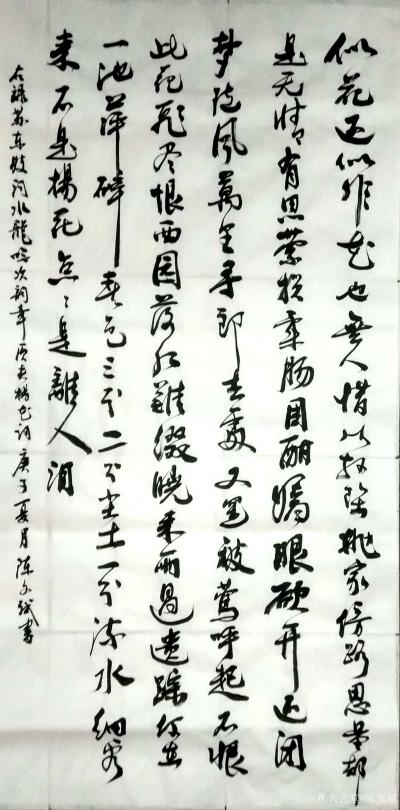 似花还似非花也無人惜从教墜抛家傍路思量却
是无情有思萦损柔肠困酣嬌眼欲开还闭
梦随风萬里寻郎去處又还被莺呼起不恨
此花飛尽恨西园落红難缀晓来雨过遗踪何在
一池萍碎春色三分二分尘土一分流水细看
来不是楊花点〻是離人泪
右録苏东坡词水龍吟次韵章质夫楊花词庚子夏月陈文斌書